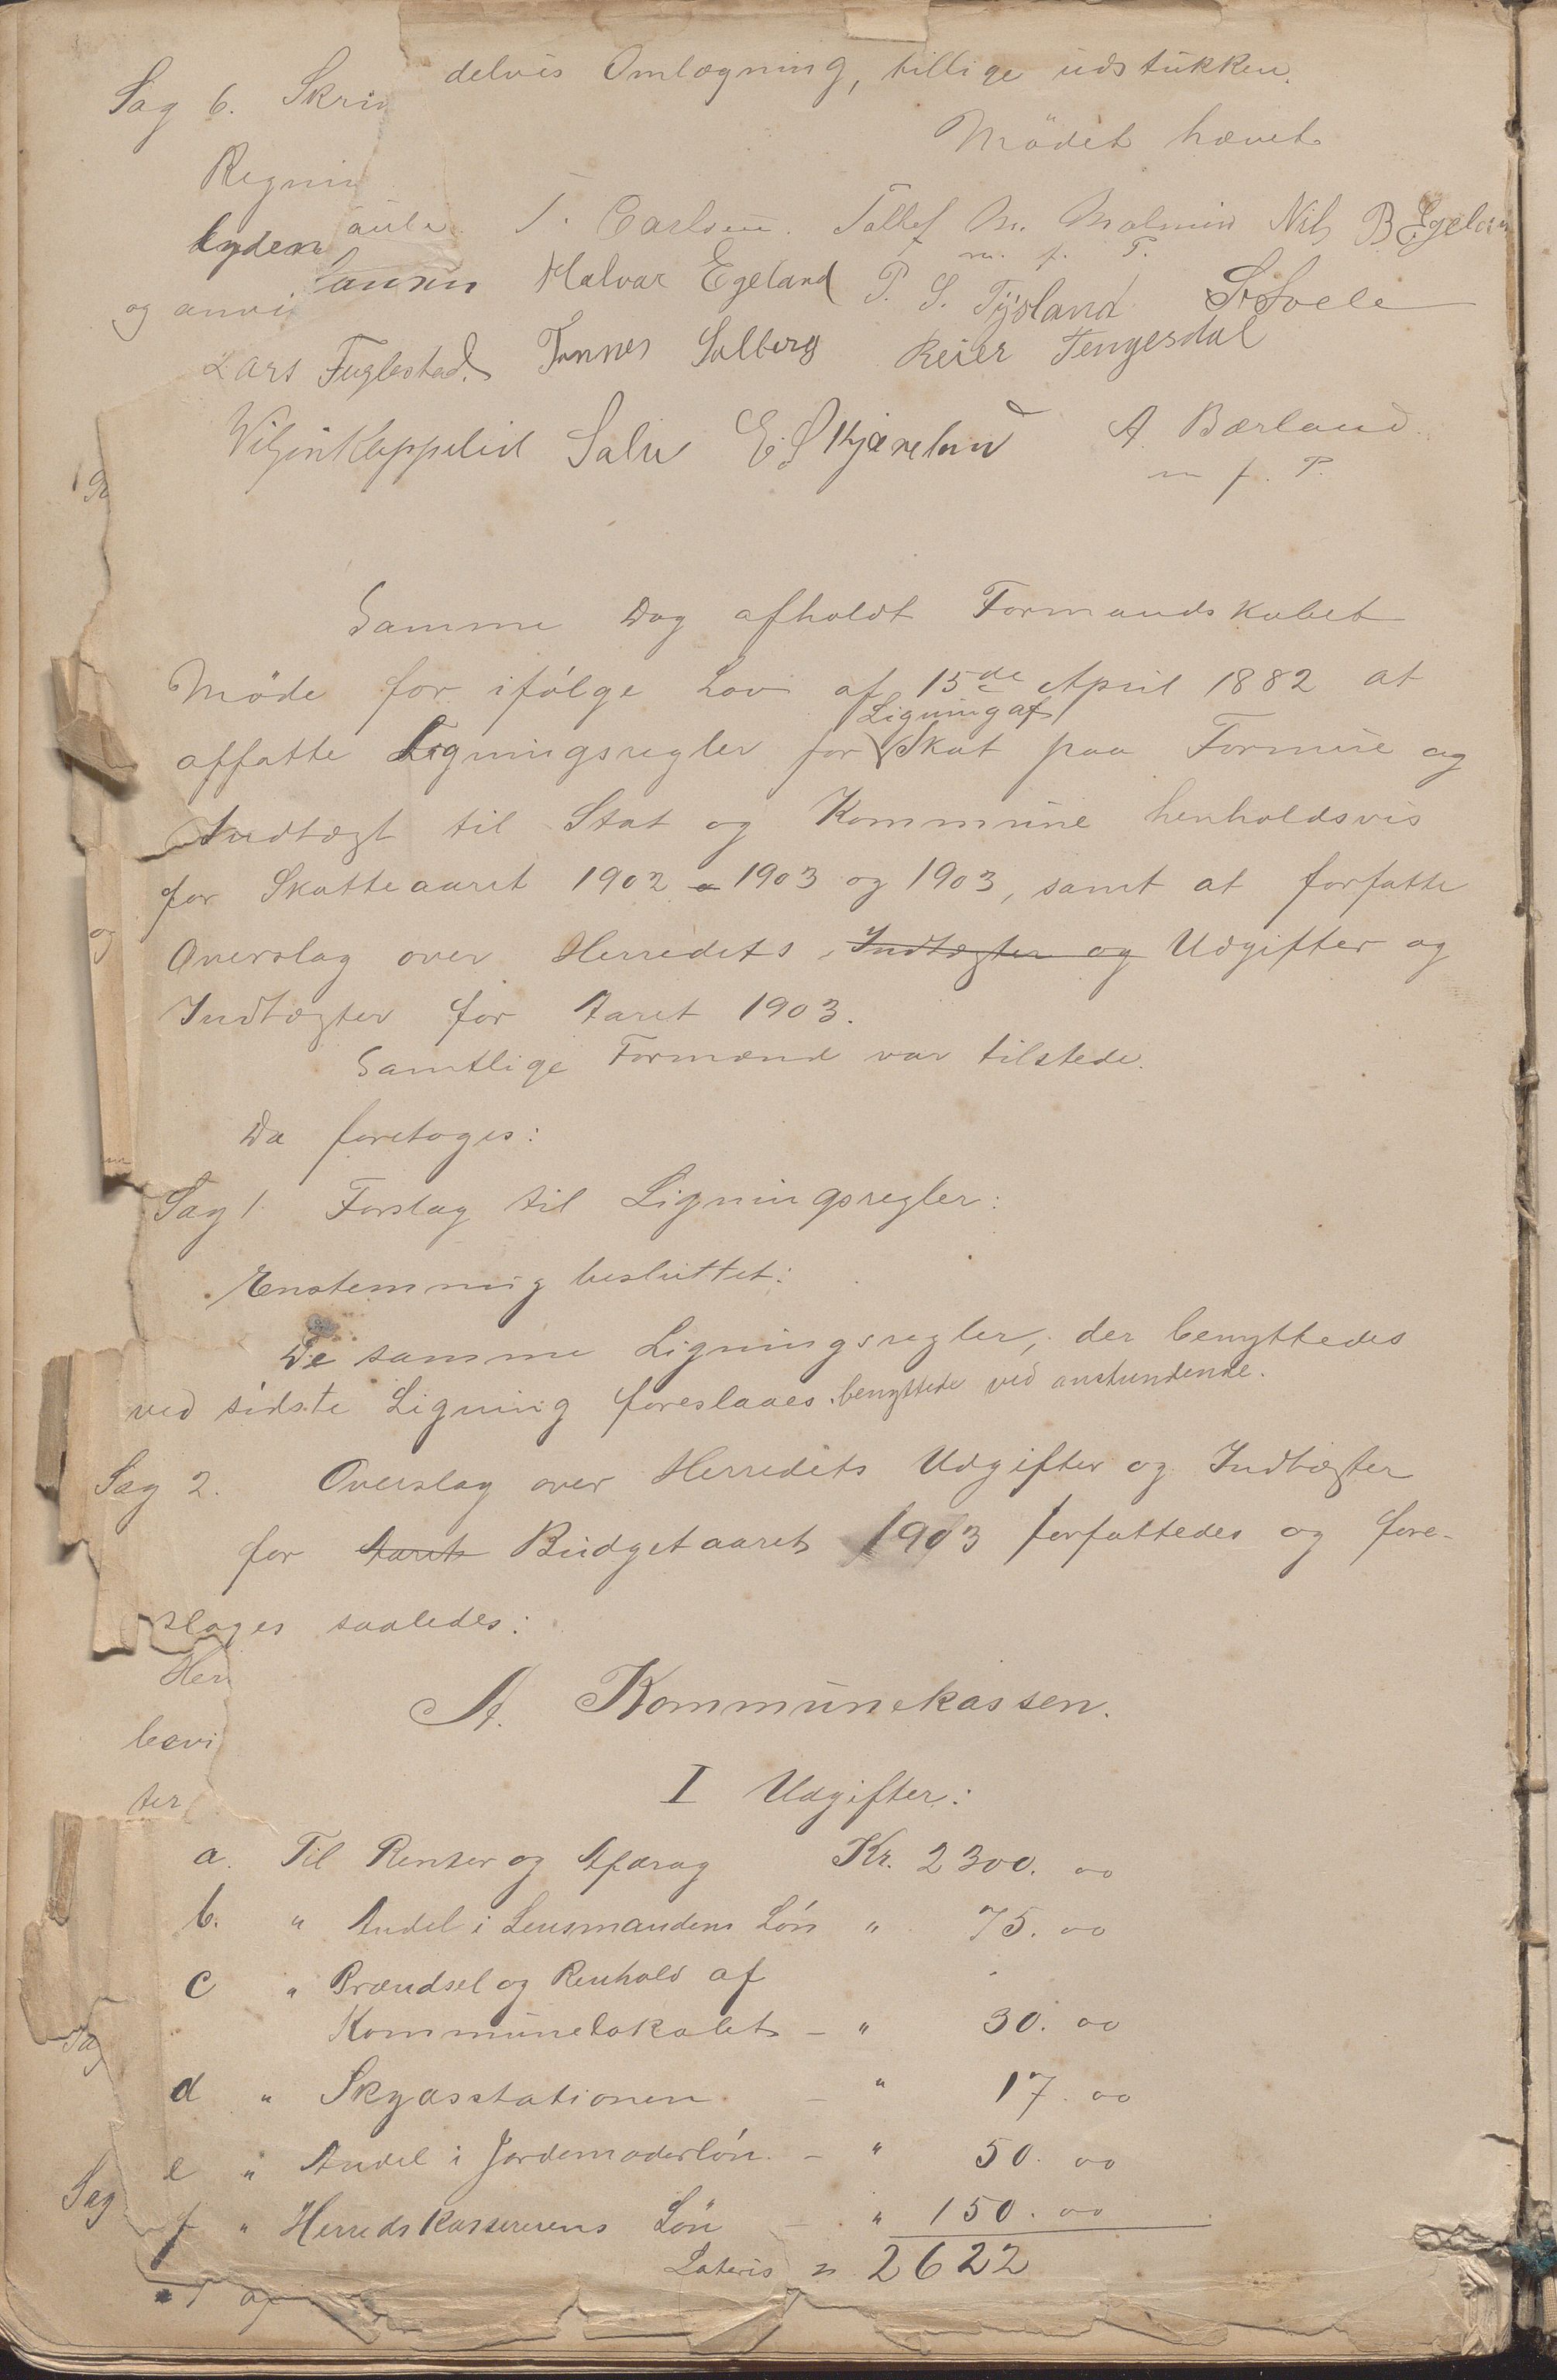 delvis Omlægning, tillige udstukken.
Sag 6. Skriv
Mödet hævet
Regnin
T. Carlsen. Tollef M. Malmin Nils B Egeland
m. f. P.
lyden
og anvi
Halvar Egeland P. S. Tysland S. Svele
Lars Fuglestad. Tönnes Solberg Reier Tengesdal
Salve E. Skjæveland A. Bærland
m f. P.
Samme Dag afholdt Formandskabet
Möde for ifølge Lov af 15de April 1882 at
Ligning af
affatte Ligningsregler for Skat paa Formue og
Indtægt til Stat og Kommune henholdsvis
for Skatteaaret 1902 1903 og 1903, samt at forfatte
Overslag over Herredets Indtægter og Udgifter og
Indtægter for Aaret 1903.
Samtlige Formænd var tilstede.
Da foretoges:
Sag 1 Forslag til Ligningsregler:
Enstemmig besluttet:
De samme Ligningsregler, der benyttedes
ved sidste Ligning foreslaaes benyttede ved anstundende.
Sag 2. Overslag over Herredets Udgifter og Indtægter
for Aaret Budgetaaret 1903 forfattedes og fore-
slages saaledes:
Her
A. Kommunekassen.
bevi
I Udgifter:
ter
a. Til Renter og Afdrag Kr. 2300. 00
b. " Andel i Lensmandens Lön " 75. 00
c " Brændsel og Renhold af
Kommunelokalet - " 30. 00
Sag
d " Skydsstationen - " 17. 00
e " Andel i Jordemoderlön - " 50. 00
Sag
f " Herredskassererens Lön - " 150. 00
Lateris " 2622